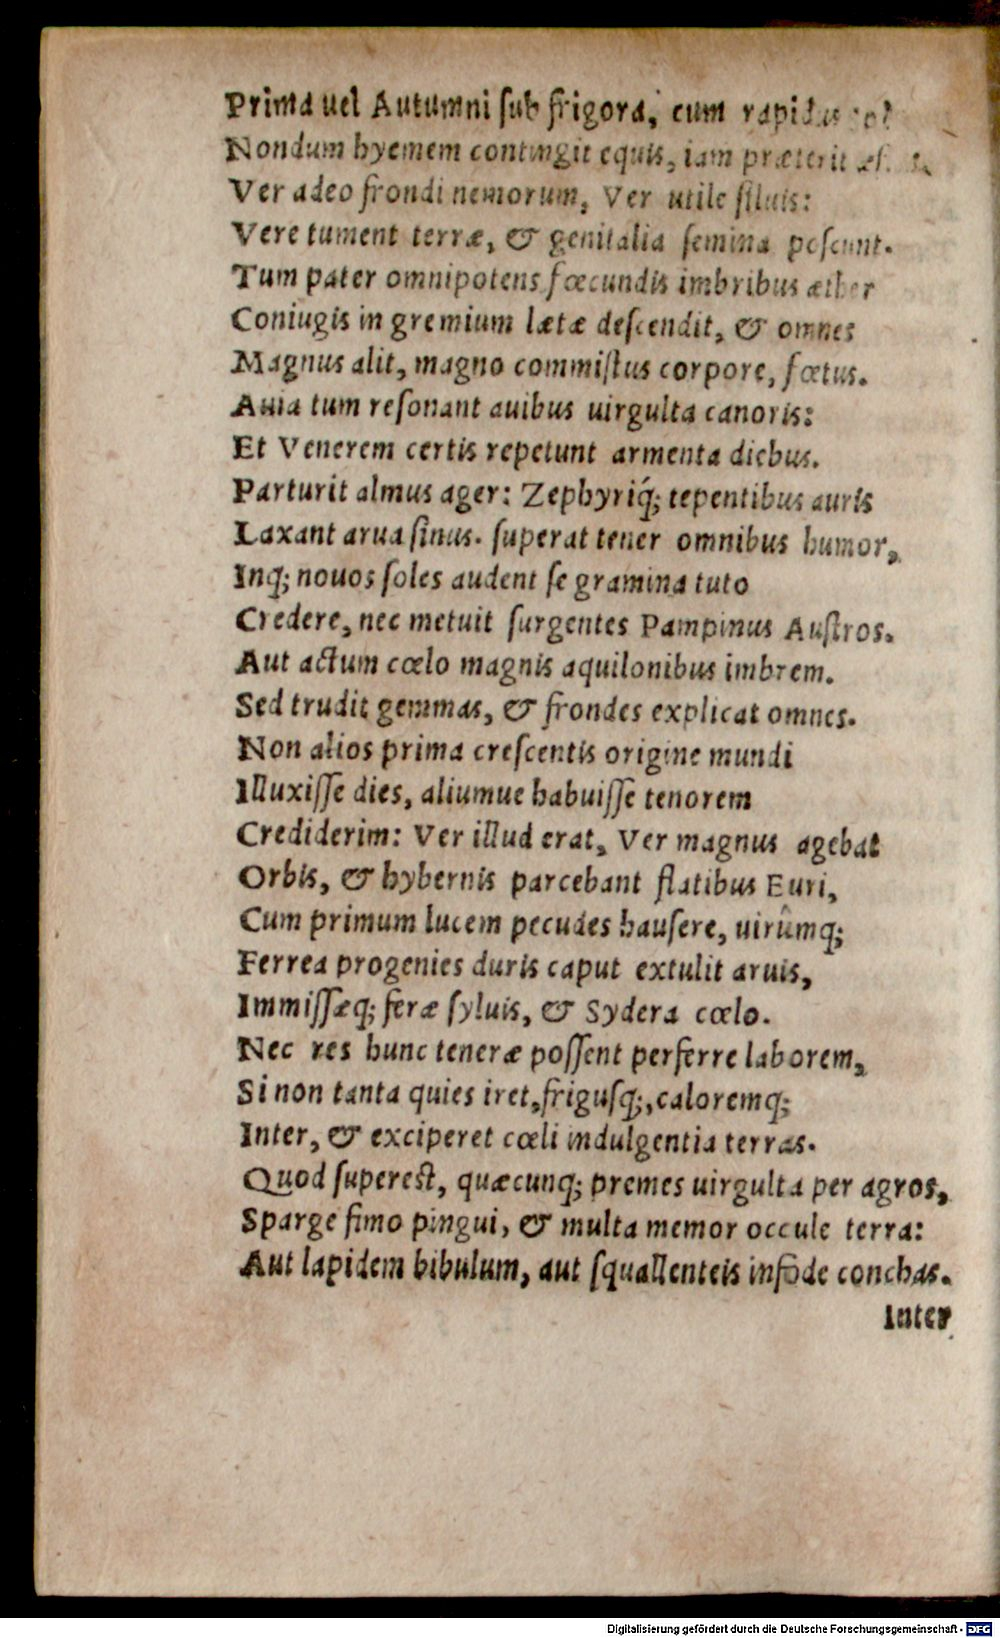 Prima uel Autumni ſub frigora, cum rapidus ſol
Nondum hyemem contingit equis, iam præterit æſtas.
Ver adeo frondi nemorum, Ver utile ſiluis:
Vere tument terræ, & genitalia ſemina poſcunt.
Tum pater omnipotens fœcundis imbribus æther
Coniugis in gremium lætæ deſcendit, & omnes
Magnus alit, magno commiſtus corpore, fœtus.
Auia tum reſonant auibus uirgulta canoris:
Et Venerem certis repetunt armenta diebus.
Parturit almus ager: Zephyriq́; tepentibus auris
Laxant arua ſinus. ſuperat tener omnibus humor,
Inq; nouos ſoles audent ſe gramina tuto
Credere, nec metuit ſurgentes Pampinus Auſtros.
Aut actum cœlo magnis aquilonibus imbrem.
Sed trudit gemmas, & frondes explicat omnes.
Non alios prima creſcentis origine mundi
Illuxiſſe dies, aliumue habuiſſe tenorem
Crediderim: Ver illud erat, Ver magnus agebat
Orbis, & hybernis parcebant flatibus Euri,
Cum primum lucem pecudes hauſere, uirûmq;
Ferrea progenies duris caput extulit aruis,
Immiſſæq; feræ ſyluis, & Sydera cœlo.
Nec res hunc teneræ poſſent perferre laborem,
Si non tanta quies iret, friguſq;, caloremq;
Inter, & exciperet cœli indulgentia terras.
Quod ſupereſt, quæcunq; premes uirgulta per agros,
Sparge fimo pingui, & multa memor occule terra:
Aut lapidem bibulum, aut ſquallenteis infōde conchas.
Inter
Digitalisierung gefördert durch die Deutsche Forschungsgemeinschaft - DFG